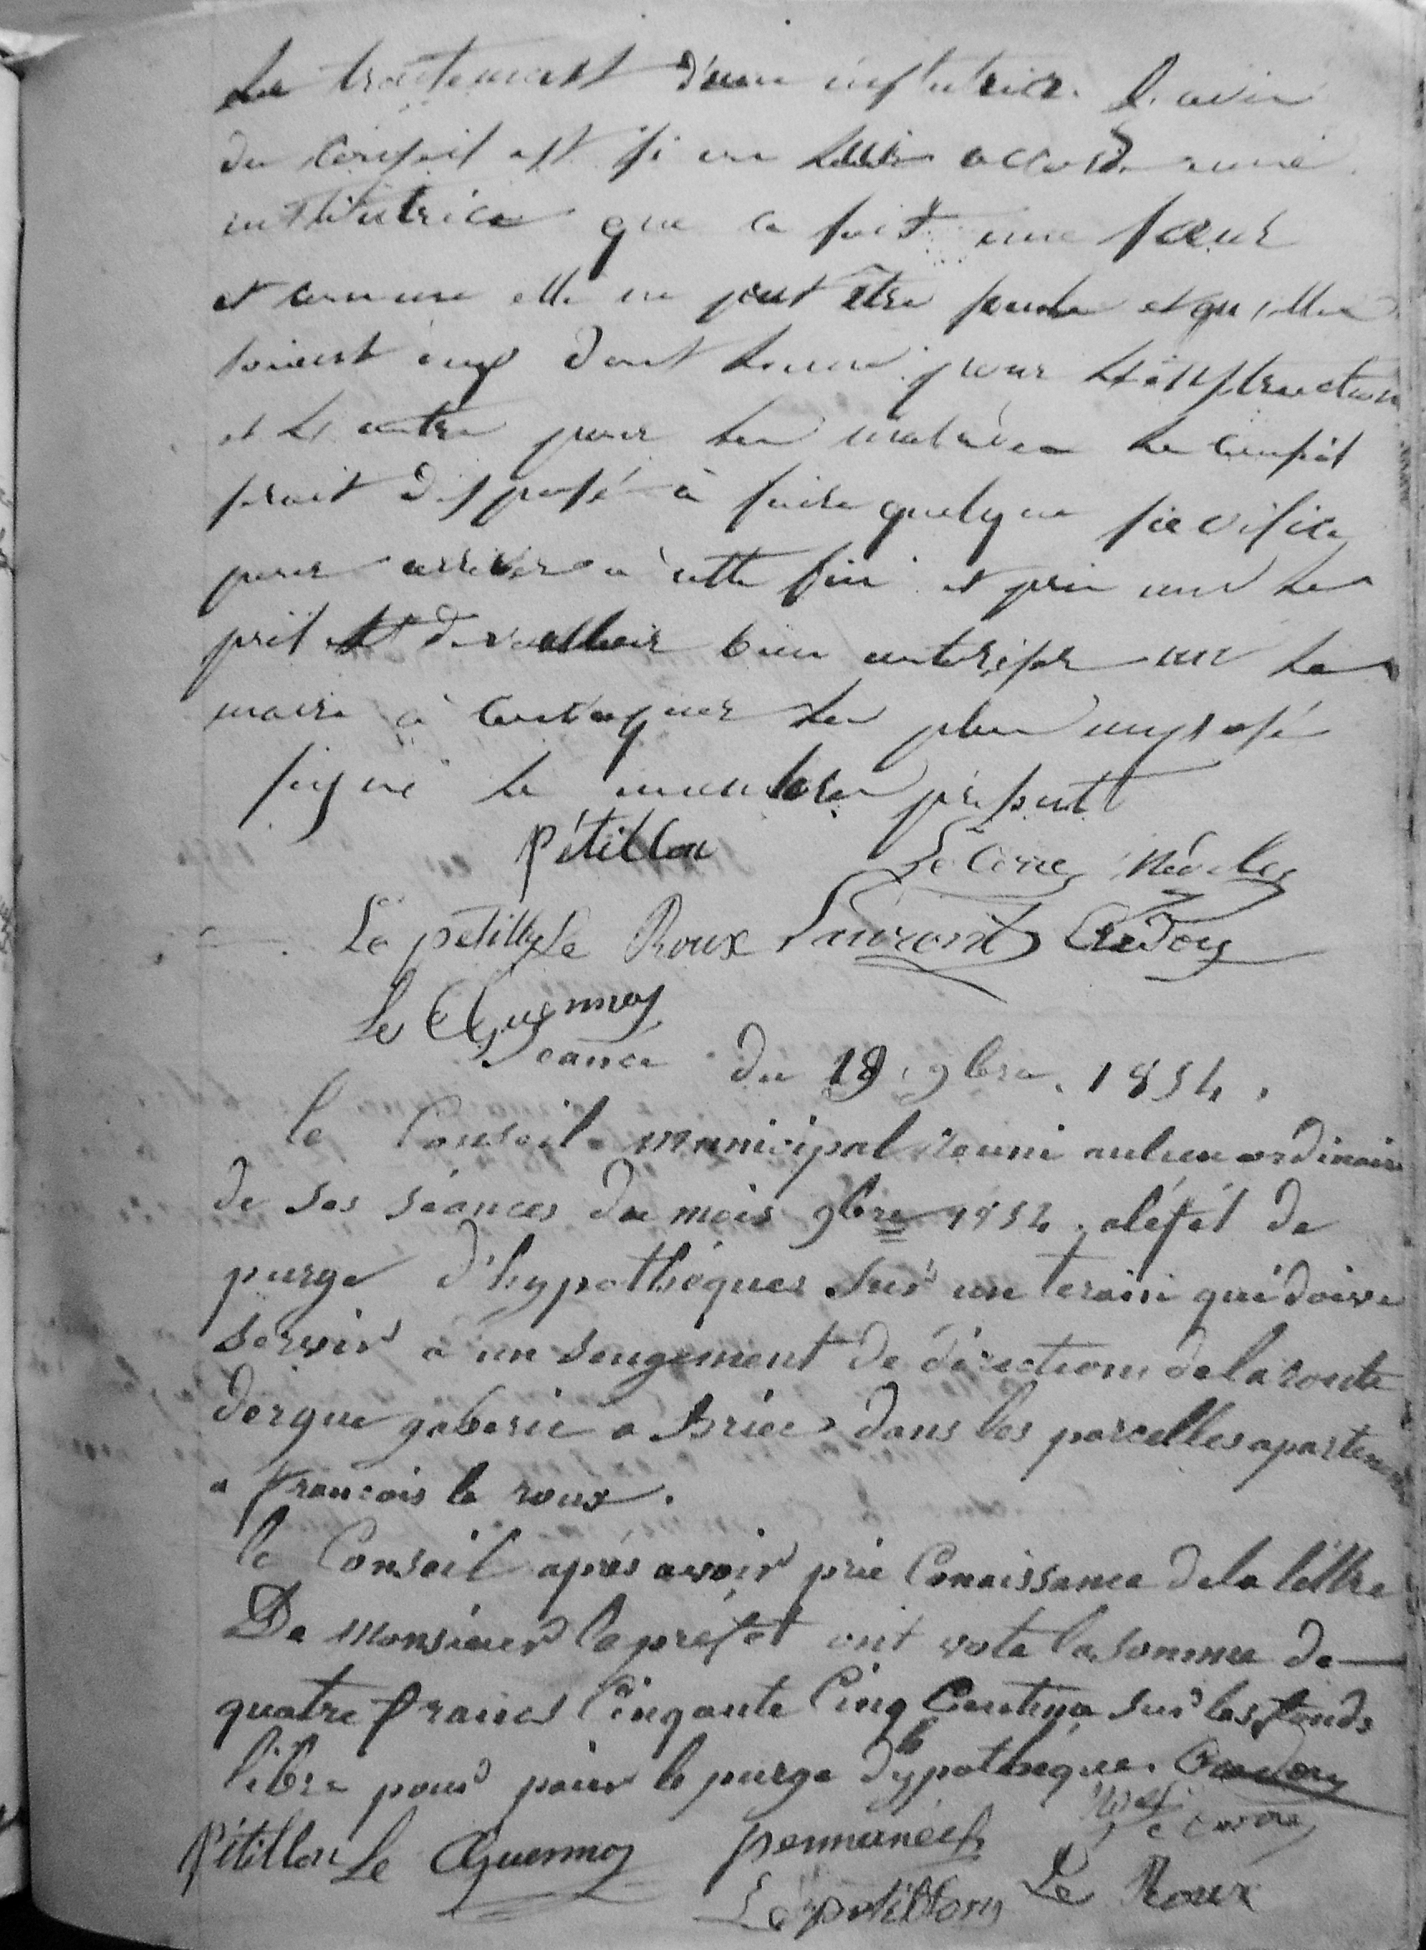 Le traitement d'une institutrice. L'avis
du Conseil est si on leur accorde une
institutrice que ce soit une sœur
et comme elle ne peut être seule et qu'elles
soient eux dont lunne pour l'instruction
et l'autre pour les malades le Conseil
serait disposé à faire quelque sacrifice
pour arriver a cette fin et prie mr le
préfet de vouloir bien autoriser mr le
maire à convoquer les plus imposé
signé le membre présent
Pétillon Le Corre Nédélec
Le pétillon Le Roux Laurent Credou
Le Guennou
Séance du 19 9bre 1854.
le Conseil municipal réuni aulieu ordinaire
de ses séances du mois 9bre 1854, aléfét de
purge d'hypothéques sur un terain qui doive
servir a un sengement de diréctions de la route
dergue gaberic a Briec dans les parcelles apartenant
a francois le roux.
le Conseil aprés avoir prie Conaissance dela lettre
De monsieur le préfet ont vote la somme de
quatre francs Cinqante Cinq Centime sur les fonds
libre pour paier le purge d'hypothéque. Credou
Pétillon Le Guennou Le Corre
Le pétillon Le Roux